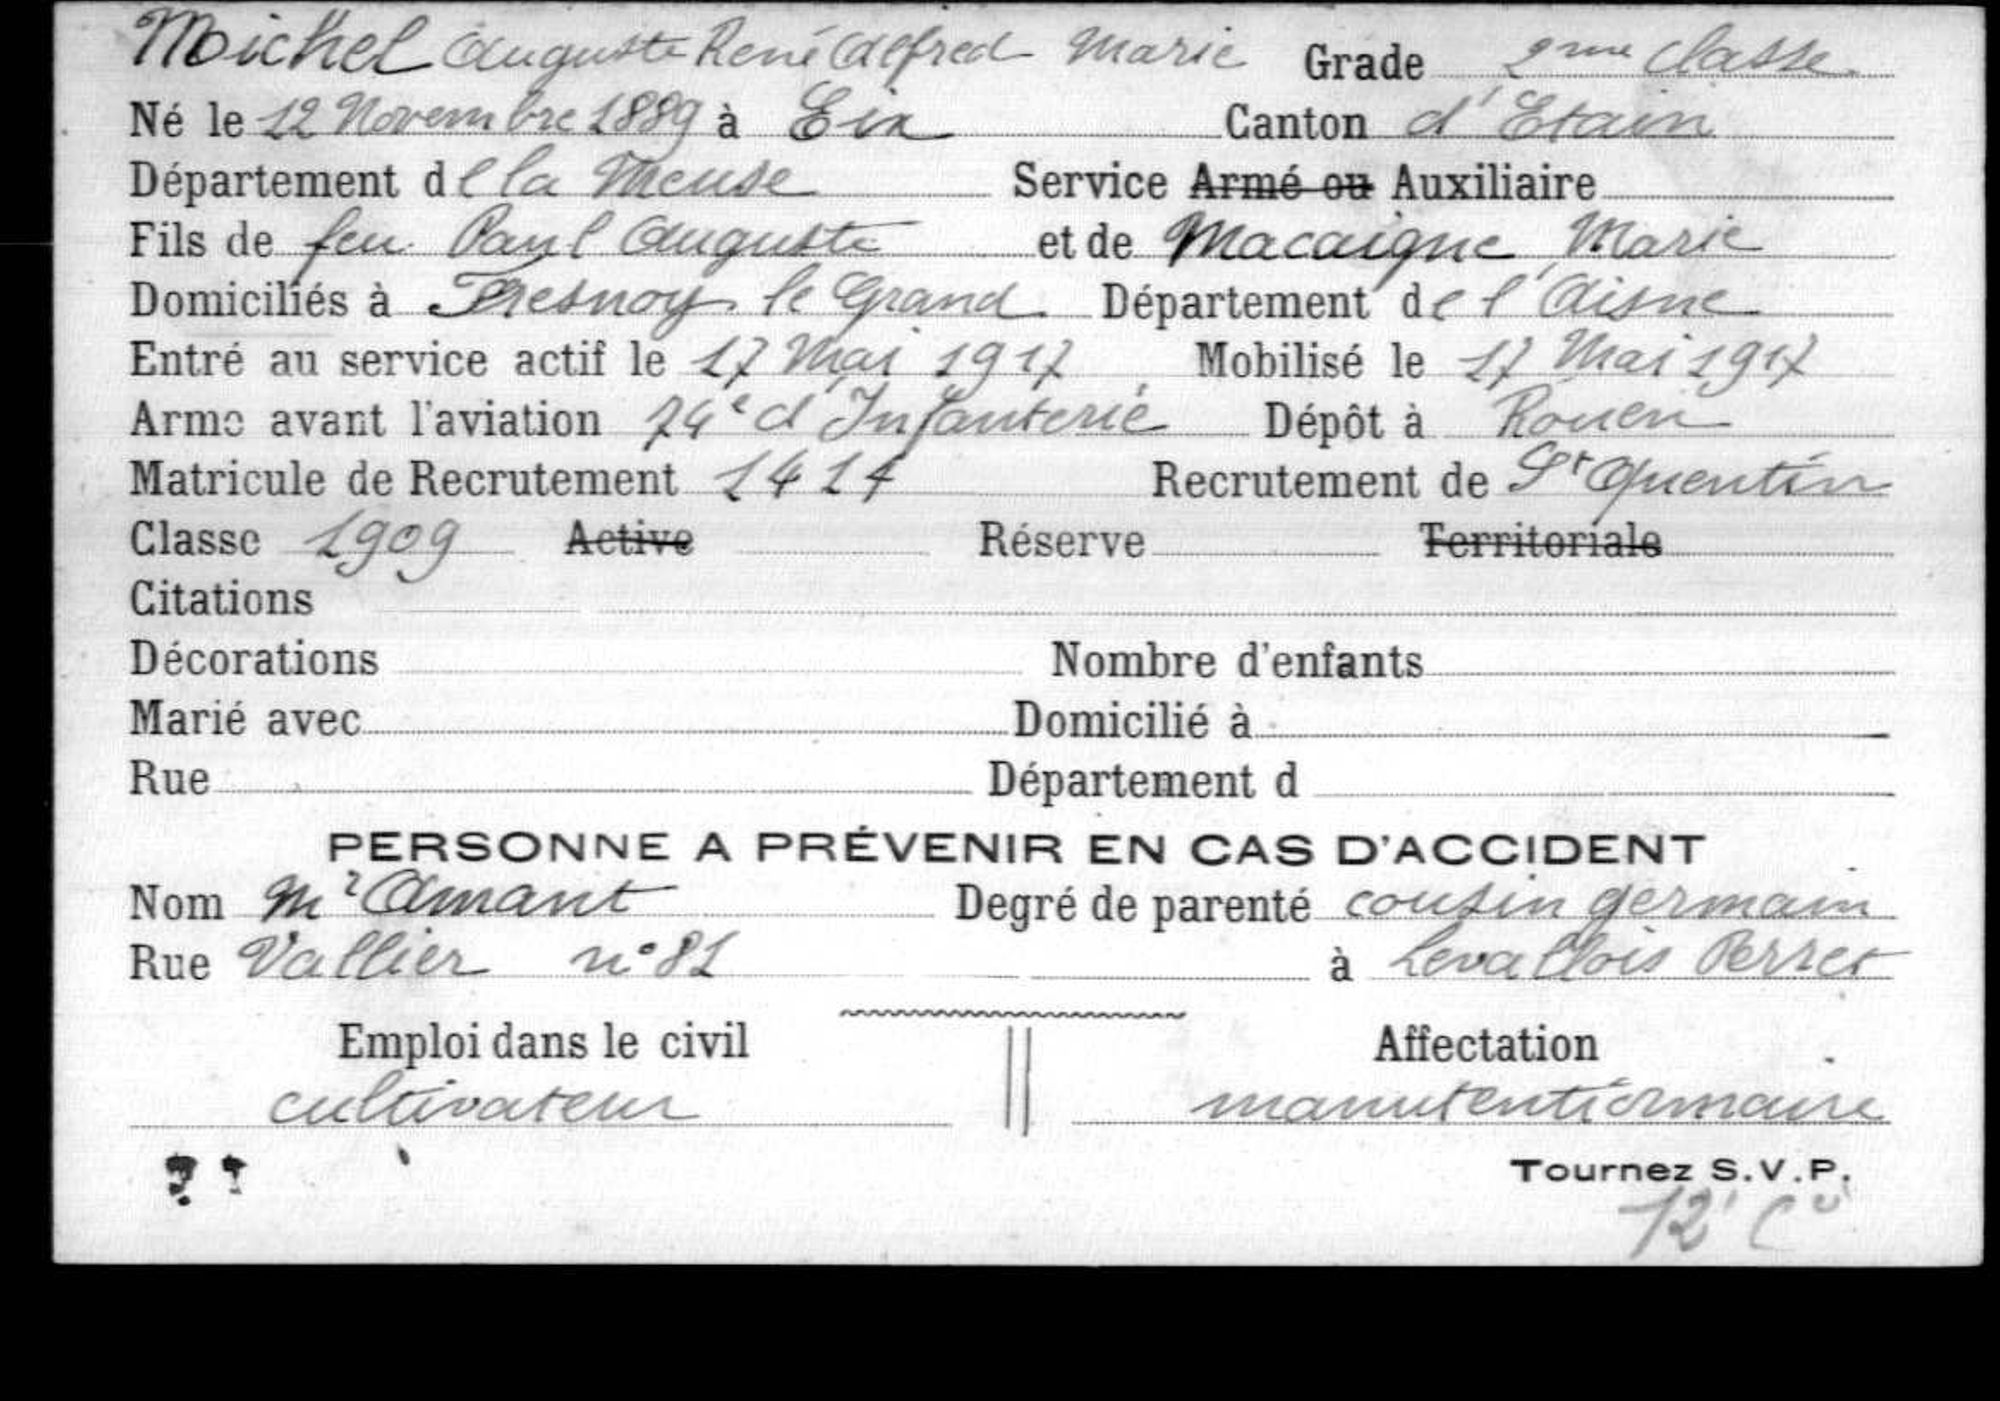 Michel Auguste René Alfred Marie Grade 2ème classe
Né le 12 Novembre 1889 à Eix Canton d'Etain
Département de la Meuse Service Armé ou Auxiliaire
Fils de feu Paul Auguste et de Macaigne Marie
Domiciliés à Fresnoy le Grand Département de l'Aisne
Entré au service actif le 17 Mai 1917 Mobilisé le 17 Mai 1917
Arme avant l'aviation 74e d'Infanterie Dépôt à Rouen
Matricule de Recrutement 1414 Recrutement de St Quentin
Classe 1909 Active Réserve Territoriale
Citations
Décorations Nombre d'enfants
Marié avec Domicilié à
Rue Département d
PERSONNE A PRÉVENIR EN CAS D'ACCIDENT
Nom Mr Amant Degré de parenté cousin germain
Rue Vallier n° 81 à Levallois Perret
Emploi dans le civil Affectation
cultivateur manutentionnaire
Tournez S.V.P.
12